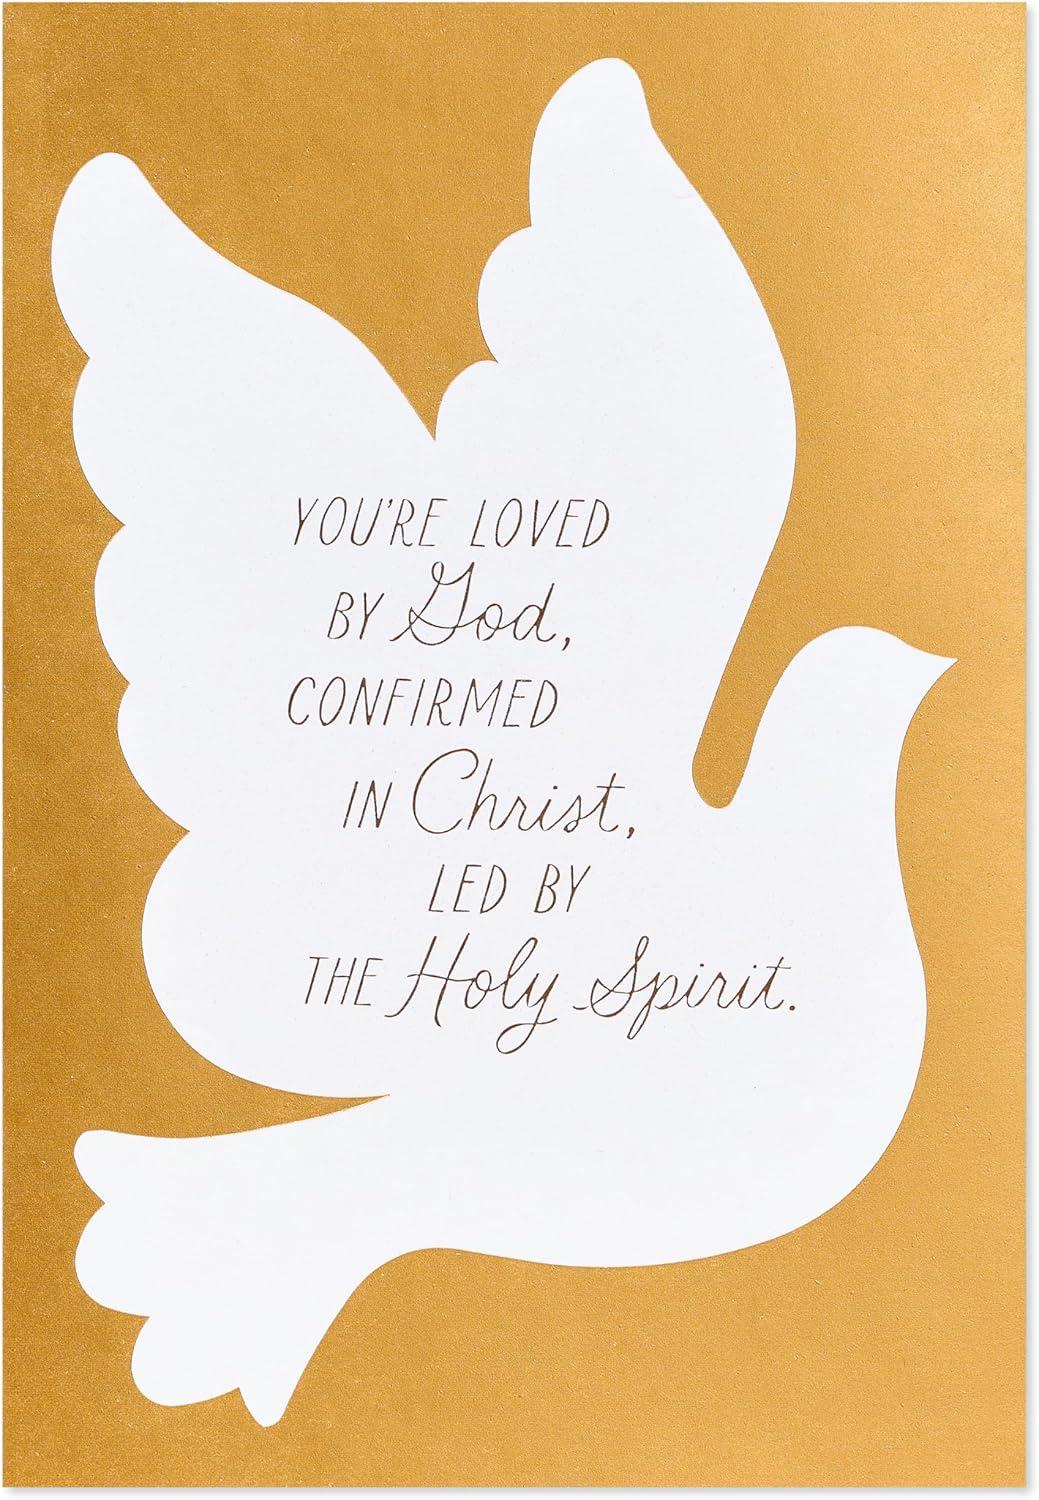 YOU'RE LOVED
BY God,
CONFIRMED
IN Christ,
LED BY
THE Holy Spirit.